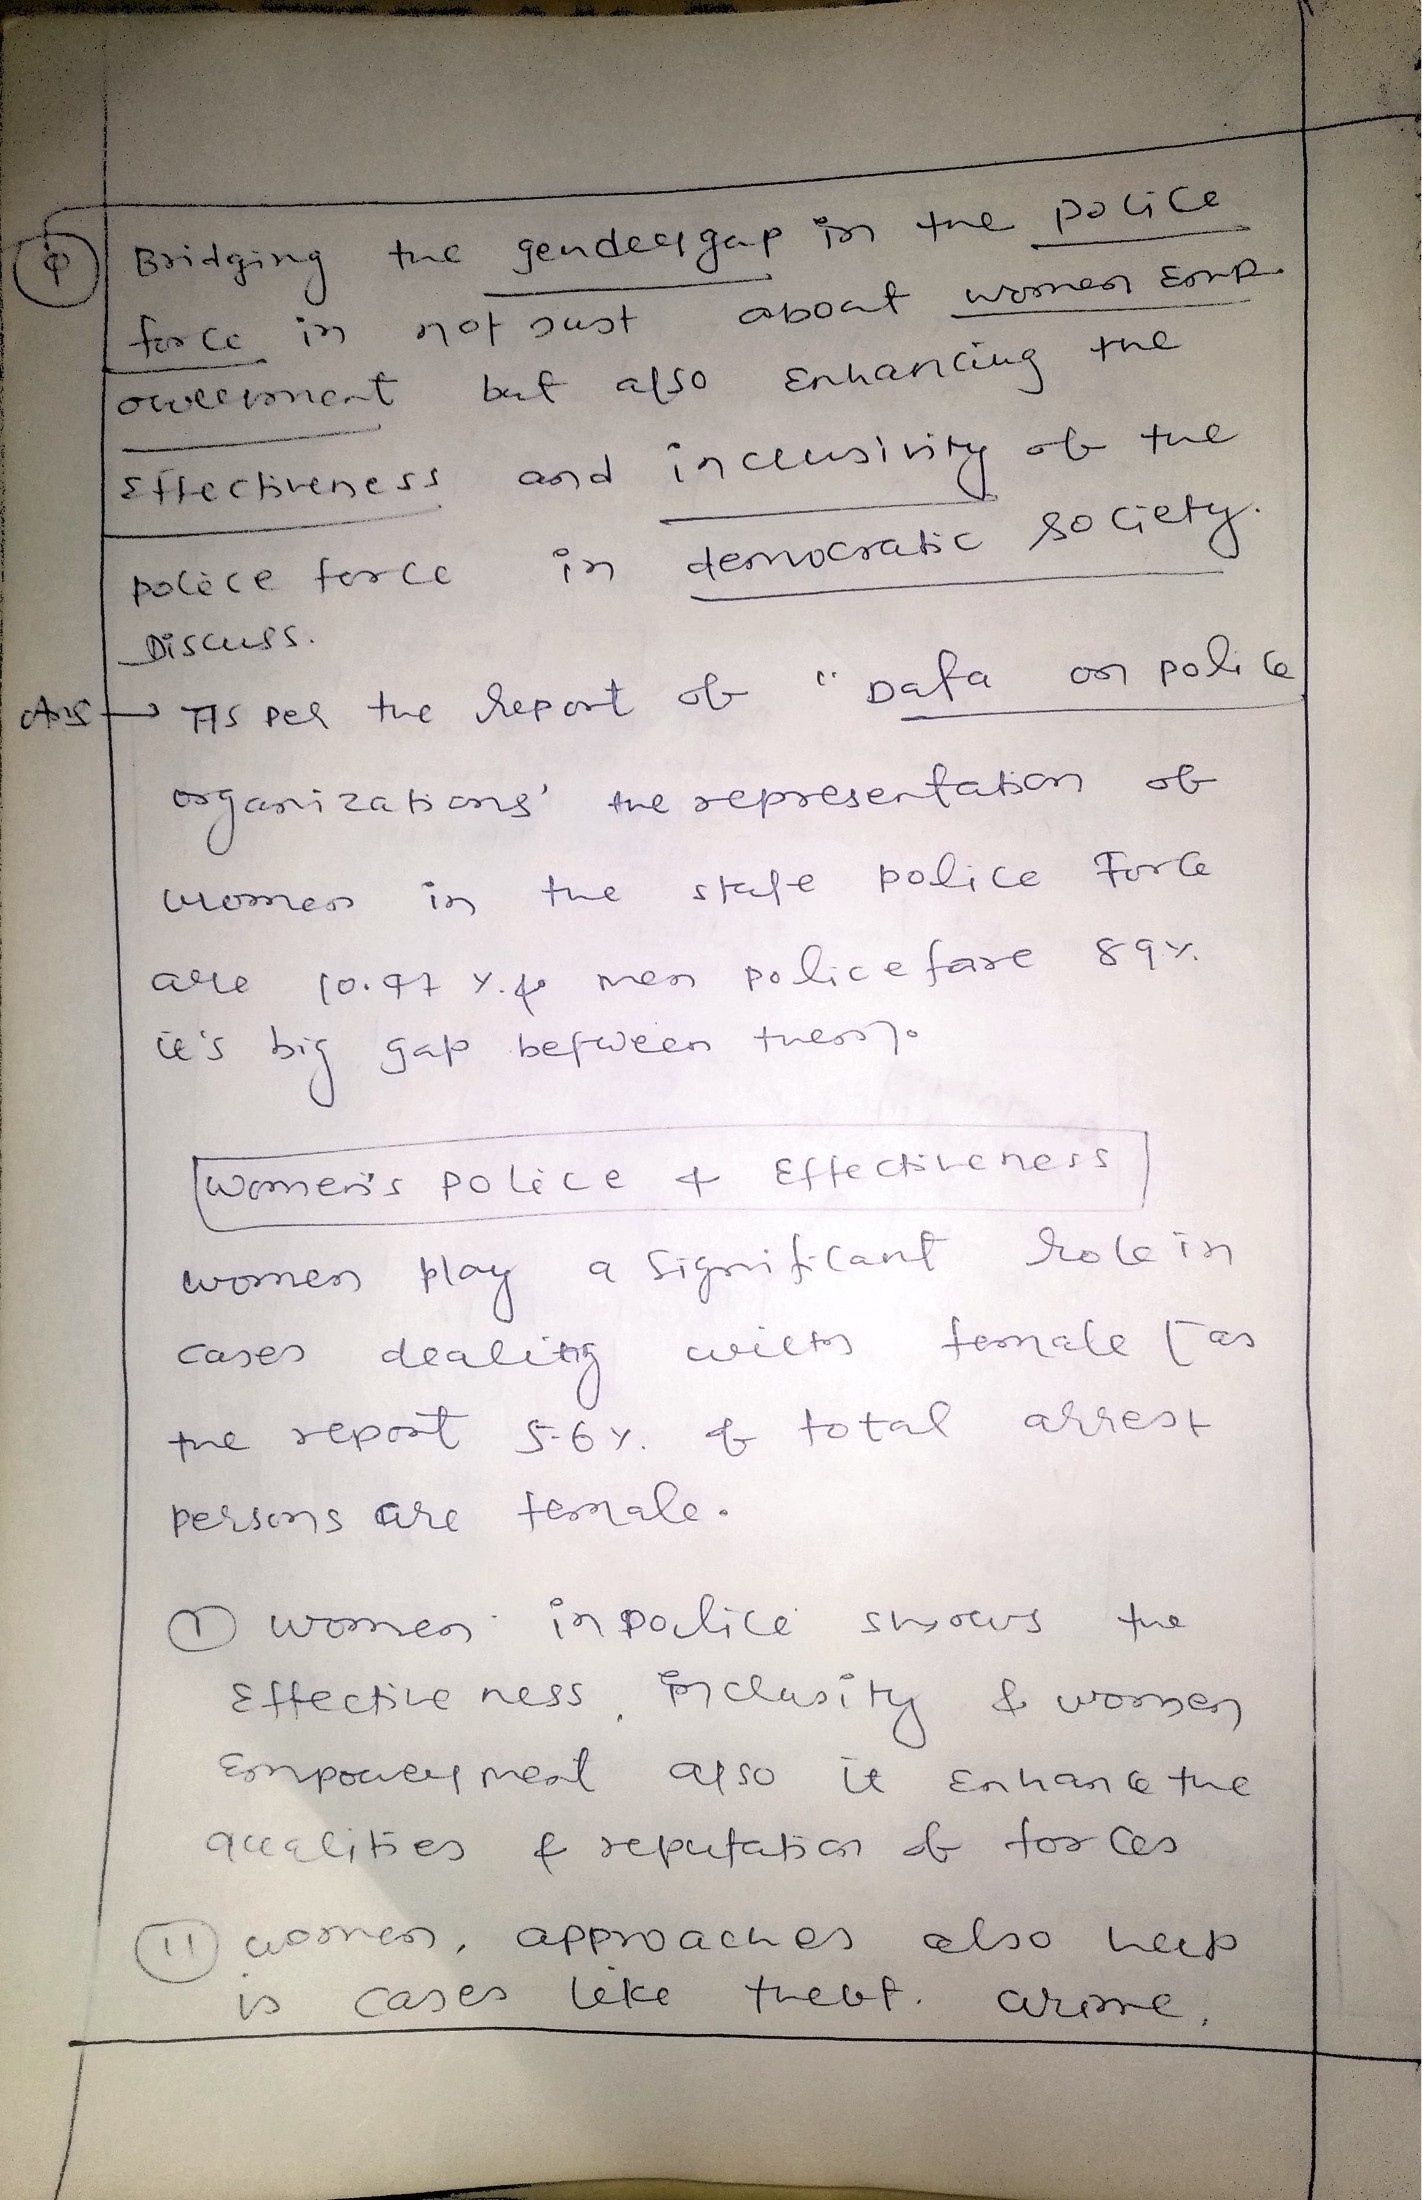 Q Bridging the gender gap in the police
force is not just about women emp-
owerment but also Enhancing the
Effectiveness and inclusivity of the
police force in democratic society.
Discuss.
Ans → As per the report of "Data on police
organizations' the representation of
women in the state police Force
are 10.47 %. & men police fare 89%.
it's big gap between them.
Women's police & Effectiveness
women play a significant role in
cases dealing with female [as
the report 5.6%. of total arrest
persons are female.
① women in police shows the
Effectiveness, inclusity & women
Empowerment also it Enhance the
qualities & reputation of forces
(ii) women, approaches also help
is cases like theft. crime,